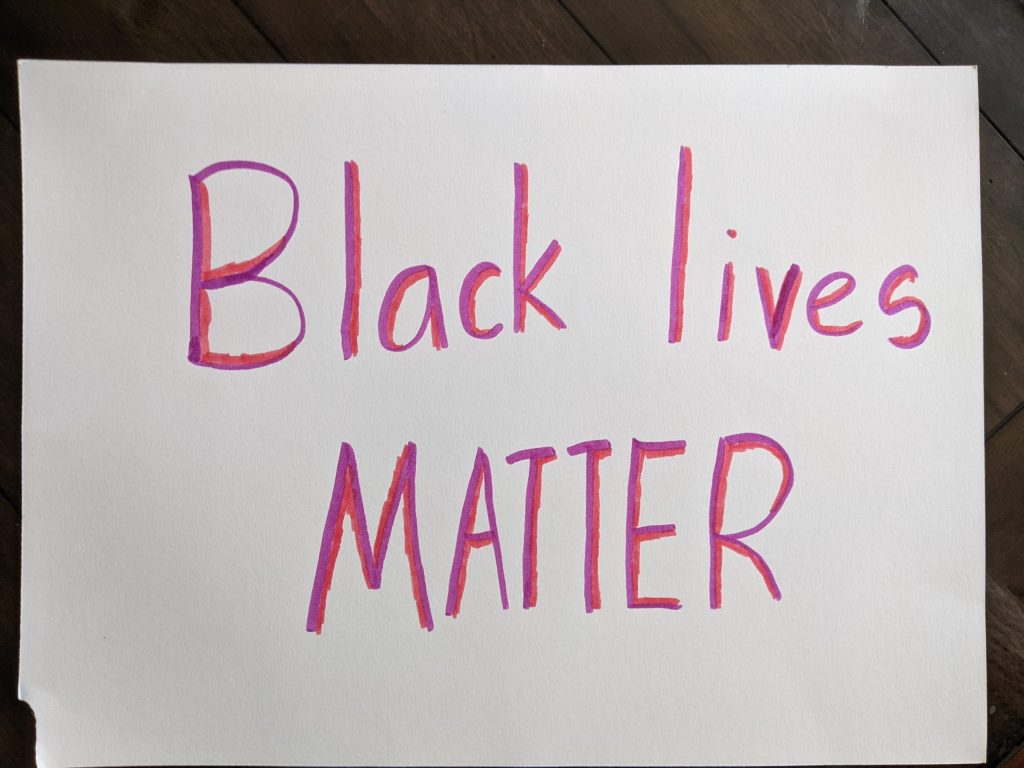 Black lives
MATTER